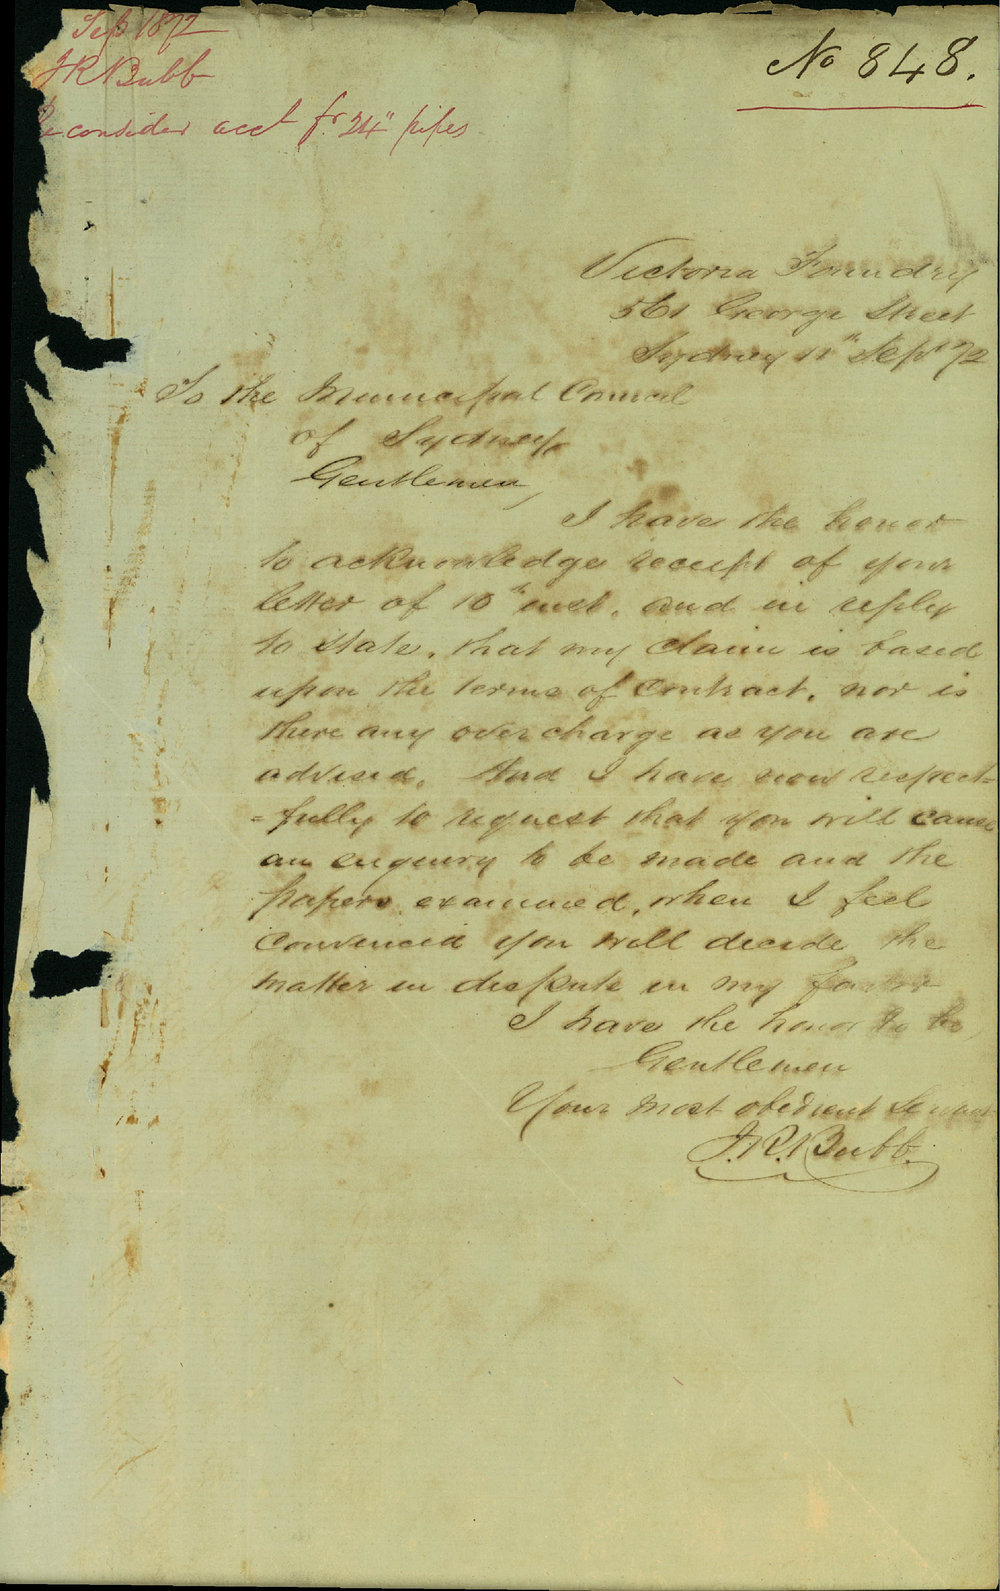 Sep 1872
J R Bubb
Reconsider acct fr. 24" pipes
No 848.
Victoria Foundry
561 George Street
Sydney 11th Sept 72
To the Municipal Council
of Sydney.
Gentlemen,
I have the honor
to acknowledge receipt of your
letter of 10th inst. and in reply
to state, that my claim is based
upon the terms of Contract, nor is
there any over charge as you are
advised. And I have now respect-
=fully to request that you will cause
an enquiry to be made and the
papers examined, when I feel
convinced you will decide the
matter in dispute in my favor
I have the honor to be
Gentlemen
Your most obedient Servant
J. R. Bubb.